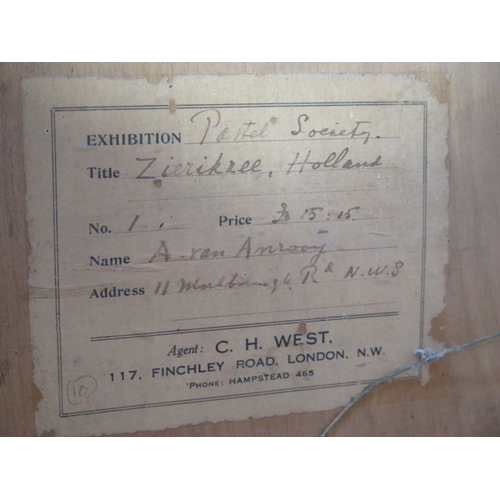 EXHIBITION Pastel Society.
Title Zierikzee, Holland
No. 1. Price £ 15:15
Name A. van Anrooy
Address 11 Marlborough Rd N.W.8
Agent: C. H. WEST,
117, FINCHLEY ROAD, LONDON, N.W.
'PHONE: HAMPSTEAD 465
10